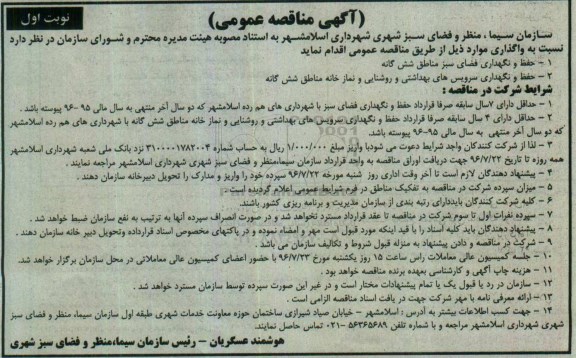 نوبت اول
(آگهی مناقصه عمومی)
سازمان سیما ، منظر و فضای سبز شهری شهرداری اسلامشهر به استناد مصوبه هیئت مدیره محترم و شورای سازمان در نظر دارد
نسبت به واگذاری موارد ذیل از طریق مناقصه عمومی اقدام نماید
۱ – حفظ و نگهداری فضای سبز مناطق شش گانه
۲ – حفظ و نگهداری سرویس های بهداشتی و روشنایی و نماز خانه مناطق شش گانه
شرایط شرکت در مناقصه :
۱ – حداقل دارای ۷سال سابقه صرفا قرارداد حفظ و نگهداری فضای سبز با شهرداری های هم رده اسلامشهر که دو سال آخر منتهی به سال مالی ۹۵-۹۶ پیوسته باشد .
۲ – حداقل دارای ۴ سال سابقه صرفا قرارداد حفظ و نگهداری سرویس های بهداشتی و روشنایی و نماز خانه مناطق شش گانه با شهرداری های هم رده اسلامشهر
که دو سال آخر منتهی به سال مالی ۹۵-۹۶ پیوسته باشد.
۳ – لذا از شرکت کنندگان واجد شرایط دعوت می شودبا واریز مبلغ ۱/۰۰۰/۰۰۰ ریال به حساب شماره ۳۱۰۰۰۰۱۷۸۲۰۰۴ نزد بانک ملی شعبه شهرداری اسلامشهر
همه روزه تا تاریخ ۹۶/۷/۲۲ جهت دریافت اوراق مناقصه به واحد قرارداد سازمان سیما،منظر و فضای سبز شهری شهرداری اسلامشهر مراجعه نمایند .
۴ – پیشنهاد دهندگان لازم است تا آخر وقت اداری روز شنبه مورخه ۹۶/۷/۲۲ سپرده خود را واریز و مدارک را تحویل دبیرخانه سازمان دهند .
۵ – میزان سپرده شرکت در مناقصه به تفکیک مناطق در فرم شرایط عمومی اعلام گردیده است .
۶ – کلیه شرکت کنندگان بایددارای رتبه بندی از سازمان مدیریت و برنامه ریزی کشور باشند.
۷ – سپرده نفرات اول تا سوم شرکت در مناقصه تا عقد قرارداد مسترد نخواهد شد و در صورت انصراف سپرده آنها به ترتیب به نفع سازمان ضبط خواهد شد .
۸ – پیشنهاد دهندگان باید کلیه اسناد را با قید اینکه مورد قبول است مهر و امضاء نموده و در پاکتهای مخصوص اسناد قرارداده وتحویل دبیر خانه سازمان دهند .
۹ – شرکت در مناقصه و دادن پیشنهاد به منزله قبول شروط و تکالیف سازمان می باشد .
۱۰ – جلسه کمیسیون عالی معاملات راس ساعت ۱۵ روز یکشنبه مورخ ۹۶/۷/۲۳ با حضور اعضای کمیسیون عالی معاملاتی در محل سازمان برگزار خواهد شد.
۱۱ – هزینه چاپ آگهی و کارشناسی بعهده برنده مناقصه خواهد بود .
۱۲ – سازمان در رد یا قبول یک یا تمام پیشنهادات مختار است و در غیر این صورت سپرده توسط سازمان مسترد خواهد شد .
۱۳ – ارائه معرفی نامه با مهر شرکت جهت در یافت اسناد مناقصه الزامی است .
۱۴ – جهت کسب اطلاعات بیشتر به آدرس : اسلامشهر – خیابان صیاد شیرازی ساختمان حوزه معاونت خدمات شهری طبقه اول سازمان سیما، منظر و فضای سبز
شهری شهرداری اسلامشهر مراجعه و با شماره تلفن ۵۶۳۶۵۶۸۹-۰۲۱ تماس حاصل نمایند.
هوشمند عسگریان – رئیس سازمان سیما،منظر و فضای سبز شهری